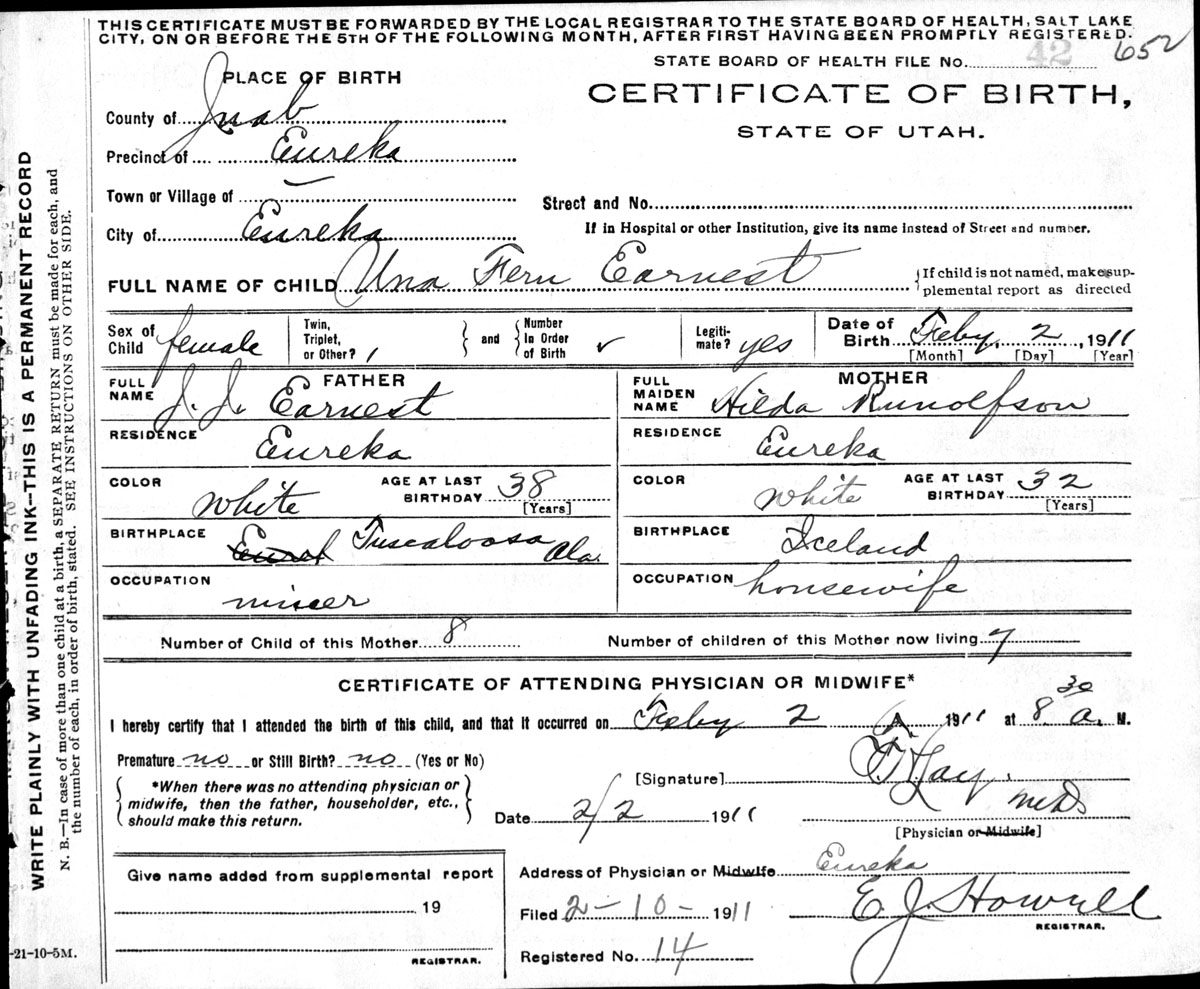 THIS CERTIFICATE MUST BE FORWARDED BY THE LOCAL REGISTRAR TO THE STATE BOARD OF HEALTH, SALT LAKE
CITY, ON OR BEFORE THE 5TH OF THE FOLLOWING MONTH, AFTER FIRST HAVING BEEN PROMPTLY REGISTERED.
STATE BOARD OF HEALTH FILE No. 42 652
PLACE OF BIRTH
CERTIFICATE OF BIRTH,
STATE OF UTAH.
County of Juab
Precinct of Eureka
Town or Village of —
Street and No.
City of Eureka
If in Hospital or other Institution, give its name instead of Street and number.
FULL NAME OF CHILD Una Fern Earnest
{If child is not named, make sup-
plemental report as directed
Sex of Child female
Twin, Triplet, or Other? 1
} and {
Number In Order of Birth ✓
Legiti-mate? yes
Date of Birth Feby. 2, 1911
[Month] [Day] [Year]
FATHER
FULL NAME J. J. Earnest
MOTHER
FULL MAIDEN NAME Hilda Runolfson
RESIDENCE Eureka
RESIDENCE Eureka
COLOR White
AGE AT LAST BIRTHDAY 38
[Years]
COLOR White
AGE AT LAST BIRTHDAY 32
[Years]
BIRTHPLACE Tuscaloosa Ala.
BIRTHPLACE Iceland
OCCUPATION miner
OCCUPATION housewife
Number of Child of this Mother 8
Number of children of this Mother now living 7
CERTIFICATE OF ATTENDING PHYSICIAN OR MIDWIFE*
I hereby certify that I attended the birth of this child, and that it occurred on Feby 2 1911 at 8 30 a. M.
Premature no or Still Birth? no (Yes or No)
[Signature] M.D.
{*When there was no attending physician or
midwife, then the father, householder, etc.,
should make this return.}
Date 2/2 1911
[Physician or Midwife]
Give name added from supplemental report
19
REGISTRAR.
Address of Physician or Midwife Eureka
Filed 2-10- 1911
E. J. Howell
REGISTRAR.
Registered No. 14
-21-10-5M.
WRITE PLAINLY WITH UNFADING INK—THIS IS A PERMANENT RECORD
N. B.—In case of more than one child at a birth, a SEPARATE RETURN must be made for each, and
the number of each, in order of birth, stated. SEE INSTRUCTIONS ON OTHER SIDE.